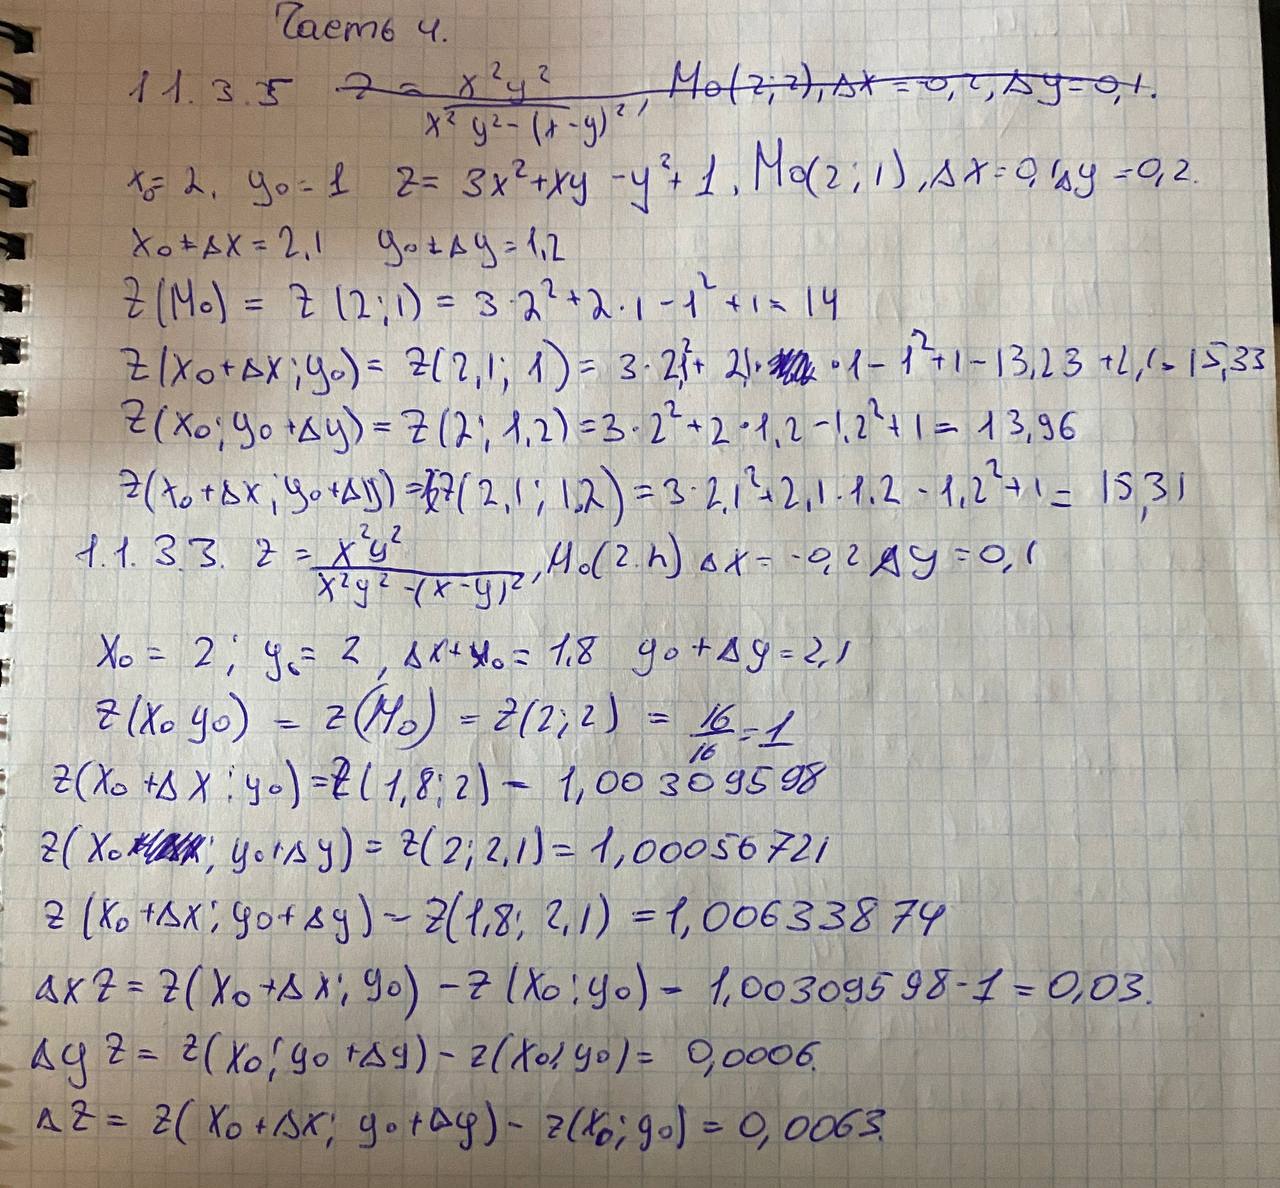 Часть 4.
11.3.5 z = x²y² / x²y²-(x-y)², M₀(2;2), Δx=0,2, Δy=0,1.
x₀=2, y₀=1 z= 3x²+xy-y²+1, M₀(2;1), Δx=0,1 Δy=0,2.
x₀+Δx=2,1 y₀+Δy=1,2
z(M₀) = z(2;1) = 3·2²+2·1-1²+1=14
z(x₀+Δx;y₀)= z(2,1; 1)= 3·2,1²+ 2,1·1-1²+1-13,23+2,1=15,33
z(x₀; y₀+Δy)=z(2; 1,2)=3·2²+2·1,2-1,2²+1=13,96
z(x₀+Δx;y₀+Δy)=z(2,1; 1,2)=3·2,1²+2,1·1,2-1,2²+1= 15,31
1.1.3.3. z = x²y² / x²y²-(x-y)², M₀(2.2) Δx=-0,2 Δy=0,1
x₀ = 2; y₀= 2, Δx+x₀=1,8 y₀+Δy=2,1
z(x₀ y₀) = z(M₀) = z(2;2) = 16/16=1
z(x₀+Δx;y₀)=z(1,8;2)- 1,00309598
z(x₀; y₀+Δy)=z(2;2,1)=1,00056721
z(x₀+Δx;y₀+Δy)-z(1,8; 2,1)=1,00633874
ΔxZ= z(x₀+Δx; y₀)-z(x₀;y₀)- 1,00309598-1=0,03.
Δy z= z(x₀;y₀+Δy)-z(x₀;y₀)= 0,0006.
Δz= z(x₀+Δx; y₀+Δy)-z(x₀;y₀)=0,0063.